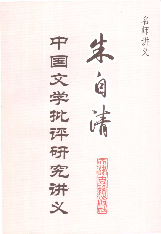 名师讲义
朱自清
中国文学批评研究讲义